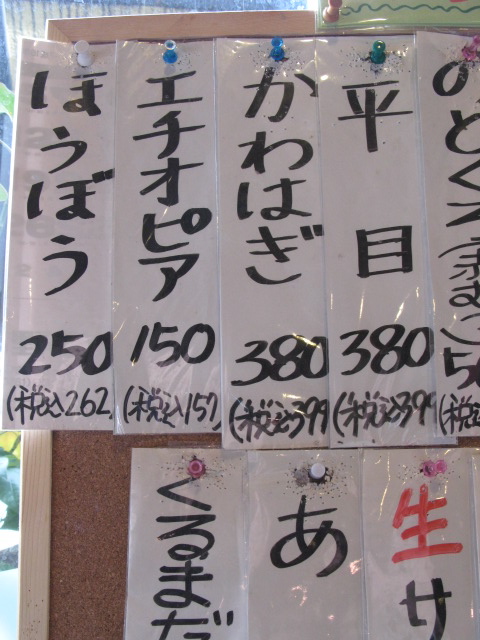 のどくろ
平目
380
(税込399
かわはぎ
380
(税込399
エチオピア
150
(税込157
ほうぼう
250
(税込262
生サ
あ
くるまだ